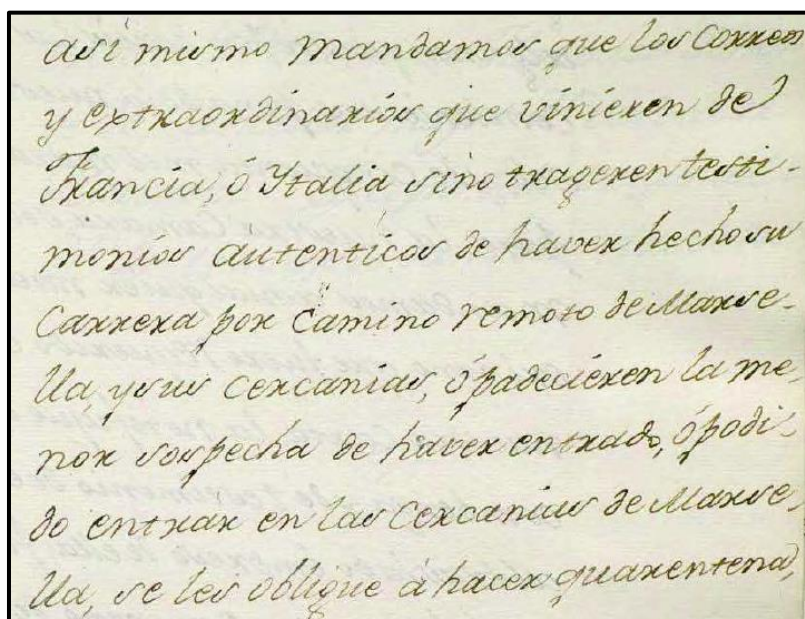 asi mismo mandamos que los Correos
y extraordinarios que vinieren de
Francia, ó Ytalia sino trageren testi-
monios autenticos de haver hecho su
Carrera por camino remoto de Marse-
lla, y sus cercanias, ó padecieren la me-
nor sospecha de haver entrado, ó podi-
do entrar en las Cercanias de Marse-
lla, se les obligue á hacer quarentena,